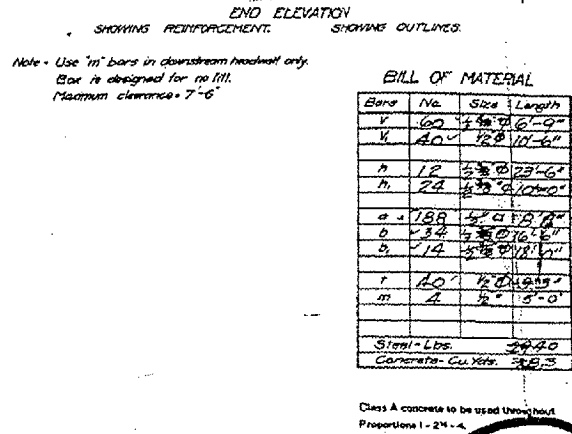 END ELEVATION
SHOWING REINFORCEMENT. SHOWING OUTLINES.
Note - Use "m" bars in downstream headwall only.
Box is designed for no fill.
Maximum clearance = 7'-6"
BILL OF MATERIAL
Bars No. Size Length
v 60 6'-9"
v₁ 40 ½"Φ 10'-6"
h 12 23'-6"
h₁ 24 10'-0"
a 188 ½" □
b 34
b₁ 14
t 40 ½"Φ
m 4 ½" 5'-0"
Steel - Lbs.
Concrete - Cu. Yds.
Class A concrete to be used throughout
Proportions 1 - 2½ - 4.